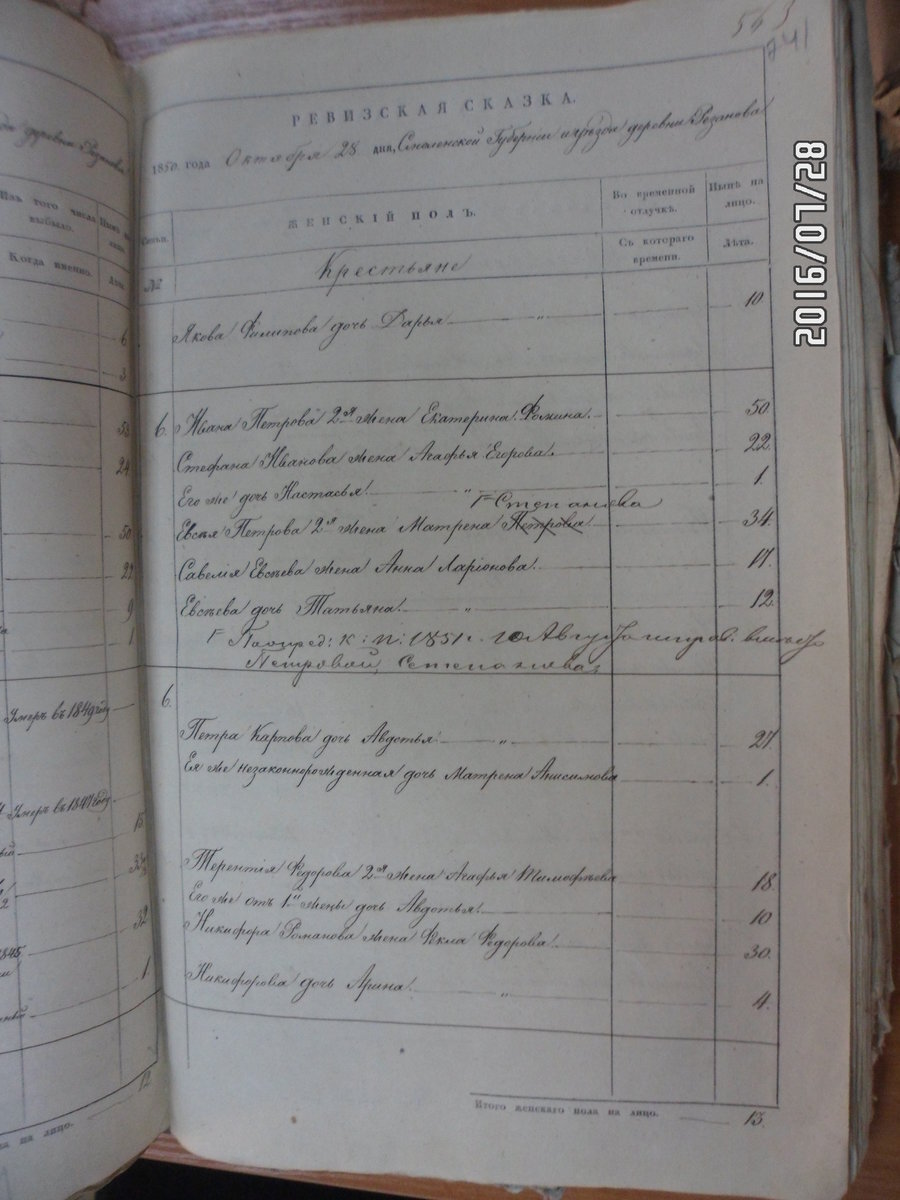 563
741
РЕВИЗСКАЯ СКАЗКА.
1850 года Октября 28 дня, Смоленской Губернии уѣзда деревни Рѣзанова
Семьи.
ЖЕНСКІЙ ПОЛЪ.
Во временной отлучкѣ.
Нынѣ на лицо.
№
Крестьяне
Съ котораго времени.
Лѣта.
Якова Филипова дочь Дарья 〃 10
6. Ивана Петрова 2я жена Екатерина Фомина. 50
Стефана Иванова жена Агафья Егорова. 22
Его же дочь Настасья. 〃 1.
Степаниева
Евсѣя Петрова 2я жена Матрена Петрова. 34.
Савелія Евсѣева жена Анна Ларіонова. 17.
Евсѣева дочь Татьяна. 〃 12.
1851 г. 10 Авгу
Петровой, Степаниева
6.
Петра Карпова дочь Авдотья 〃 27.
Ея же незаконнорожденная дочь Матрена Анисимова 1.
Терентія Федорова 2я жена Агафья Тимофѣева 18.
Его же отъ 1й жены дочь Авдотья. 10
Никифора Романова жена Фекла Федорова. 30.
Никифорова дочь Арина. 〃 4.
Итого женскаго пола на лицо. 13.
Изъ того числа выбыло.
Когда именно.
6
3
53
24
50
22
9
1
Умеръ въ 1849 году
Умеръ въ 1847 году
15
32
1
12
на лицо.
2016/07/28